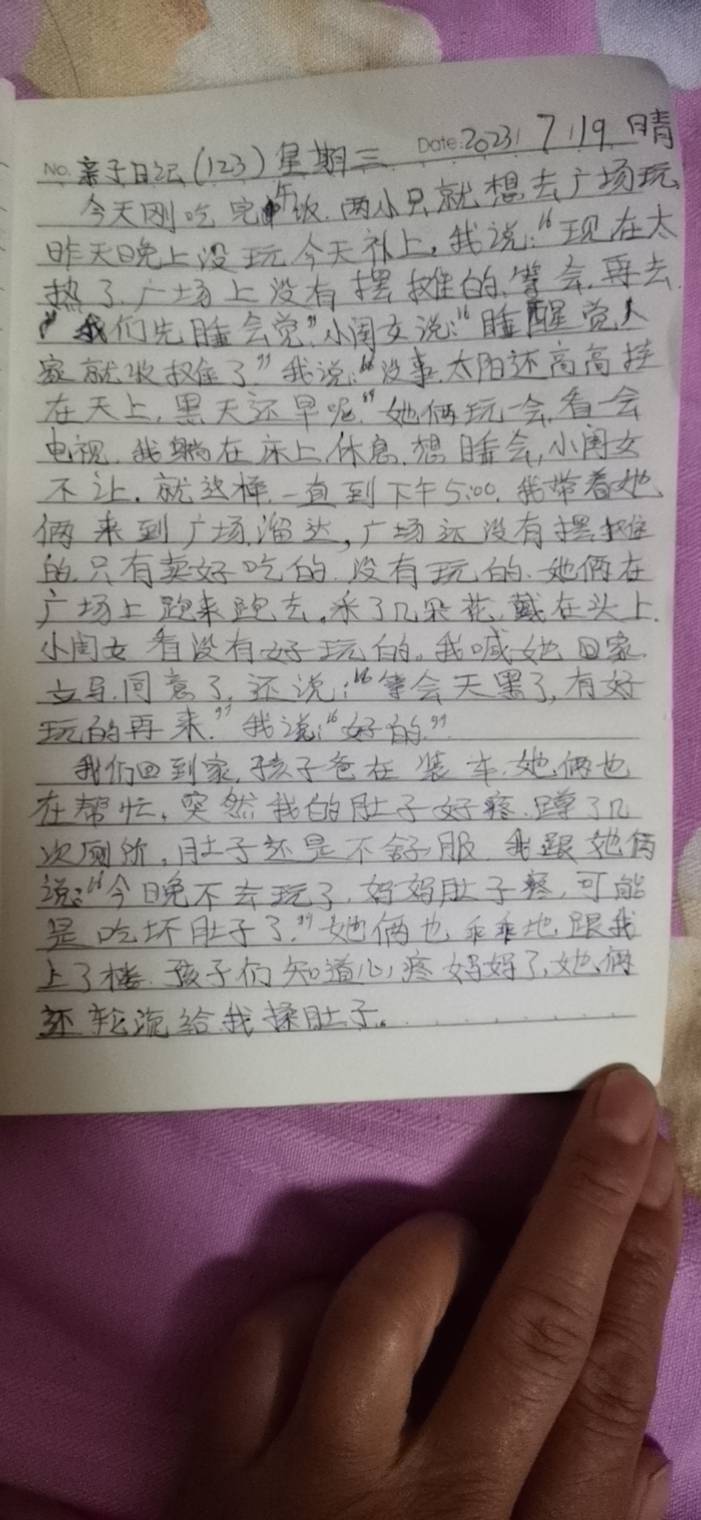 No. 亲子日记(123) 星期三 Date: 2023 / 7 / 19 晴
今天刚吃完午饭.两小只就想去广场玩,
昨天晚上没玩今天补上。我说:“现在太
热了.广场上没有摆摊的.等会.再去.
“我们先睡会觉”小闺女说:“睡醒觉人
家就收摊了”我说:“没事.太阳还高高挂
在天上,黑天还早呢”她俩玩一会.看一会
电视.我躺在床上休息.想睡会,小闺女
不让.就这样.一直到下午5:00.我带着她
俩来到广场.溜达,广场还没有摆摊
的.只有卖好吃的.没有玩的.她俩在
广场上跑来跑去.采了几朵花.戴在头上.
小闺女看没有好玩的。我喊她回家.
立马.同意了.还说:“等会天黑了,有好
玩的再来.”我说:“好的.”
我们回到家.孩子爸在装车.她俩也
在帮忙,突然我的肚子好疼.蹲了几
次厕所,肚子还是不舒服.我跟她俩
说:“今晚不去玩了.妈妈肚子疼,可能
是吃坏肚子了.”她俩也乖乖地跟我
上了楼.孩子们知道心疼妈妈了,她俩
还轮流给我揉肚子。